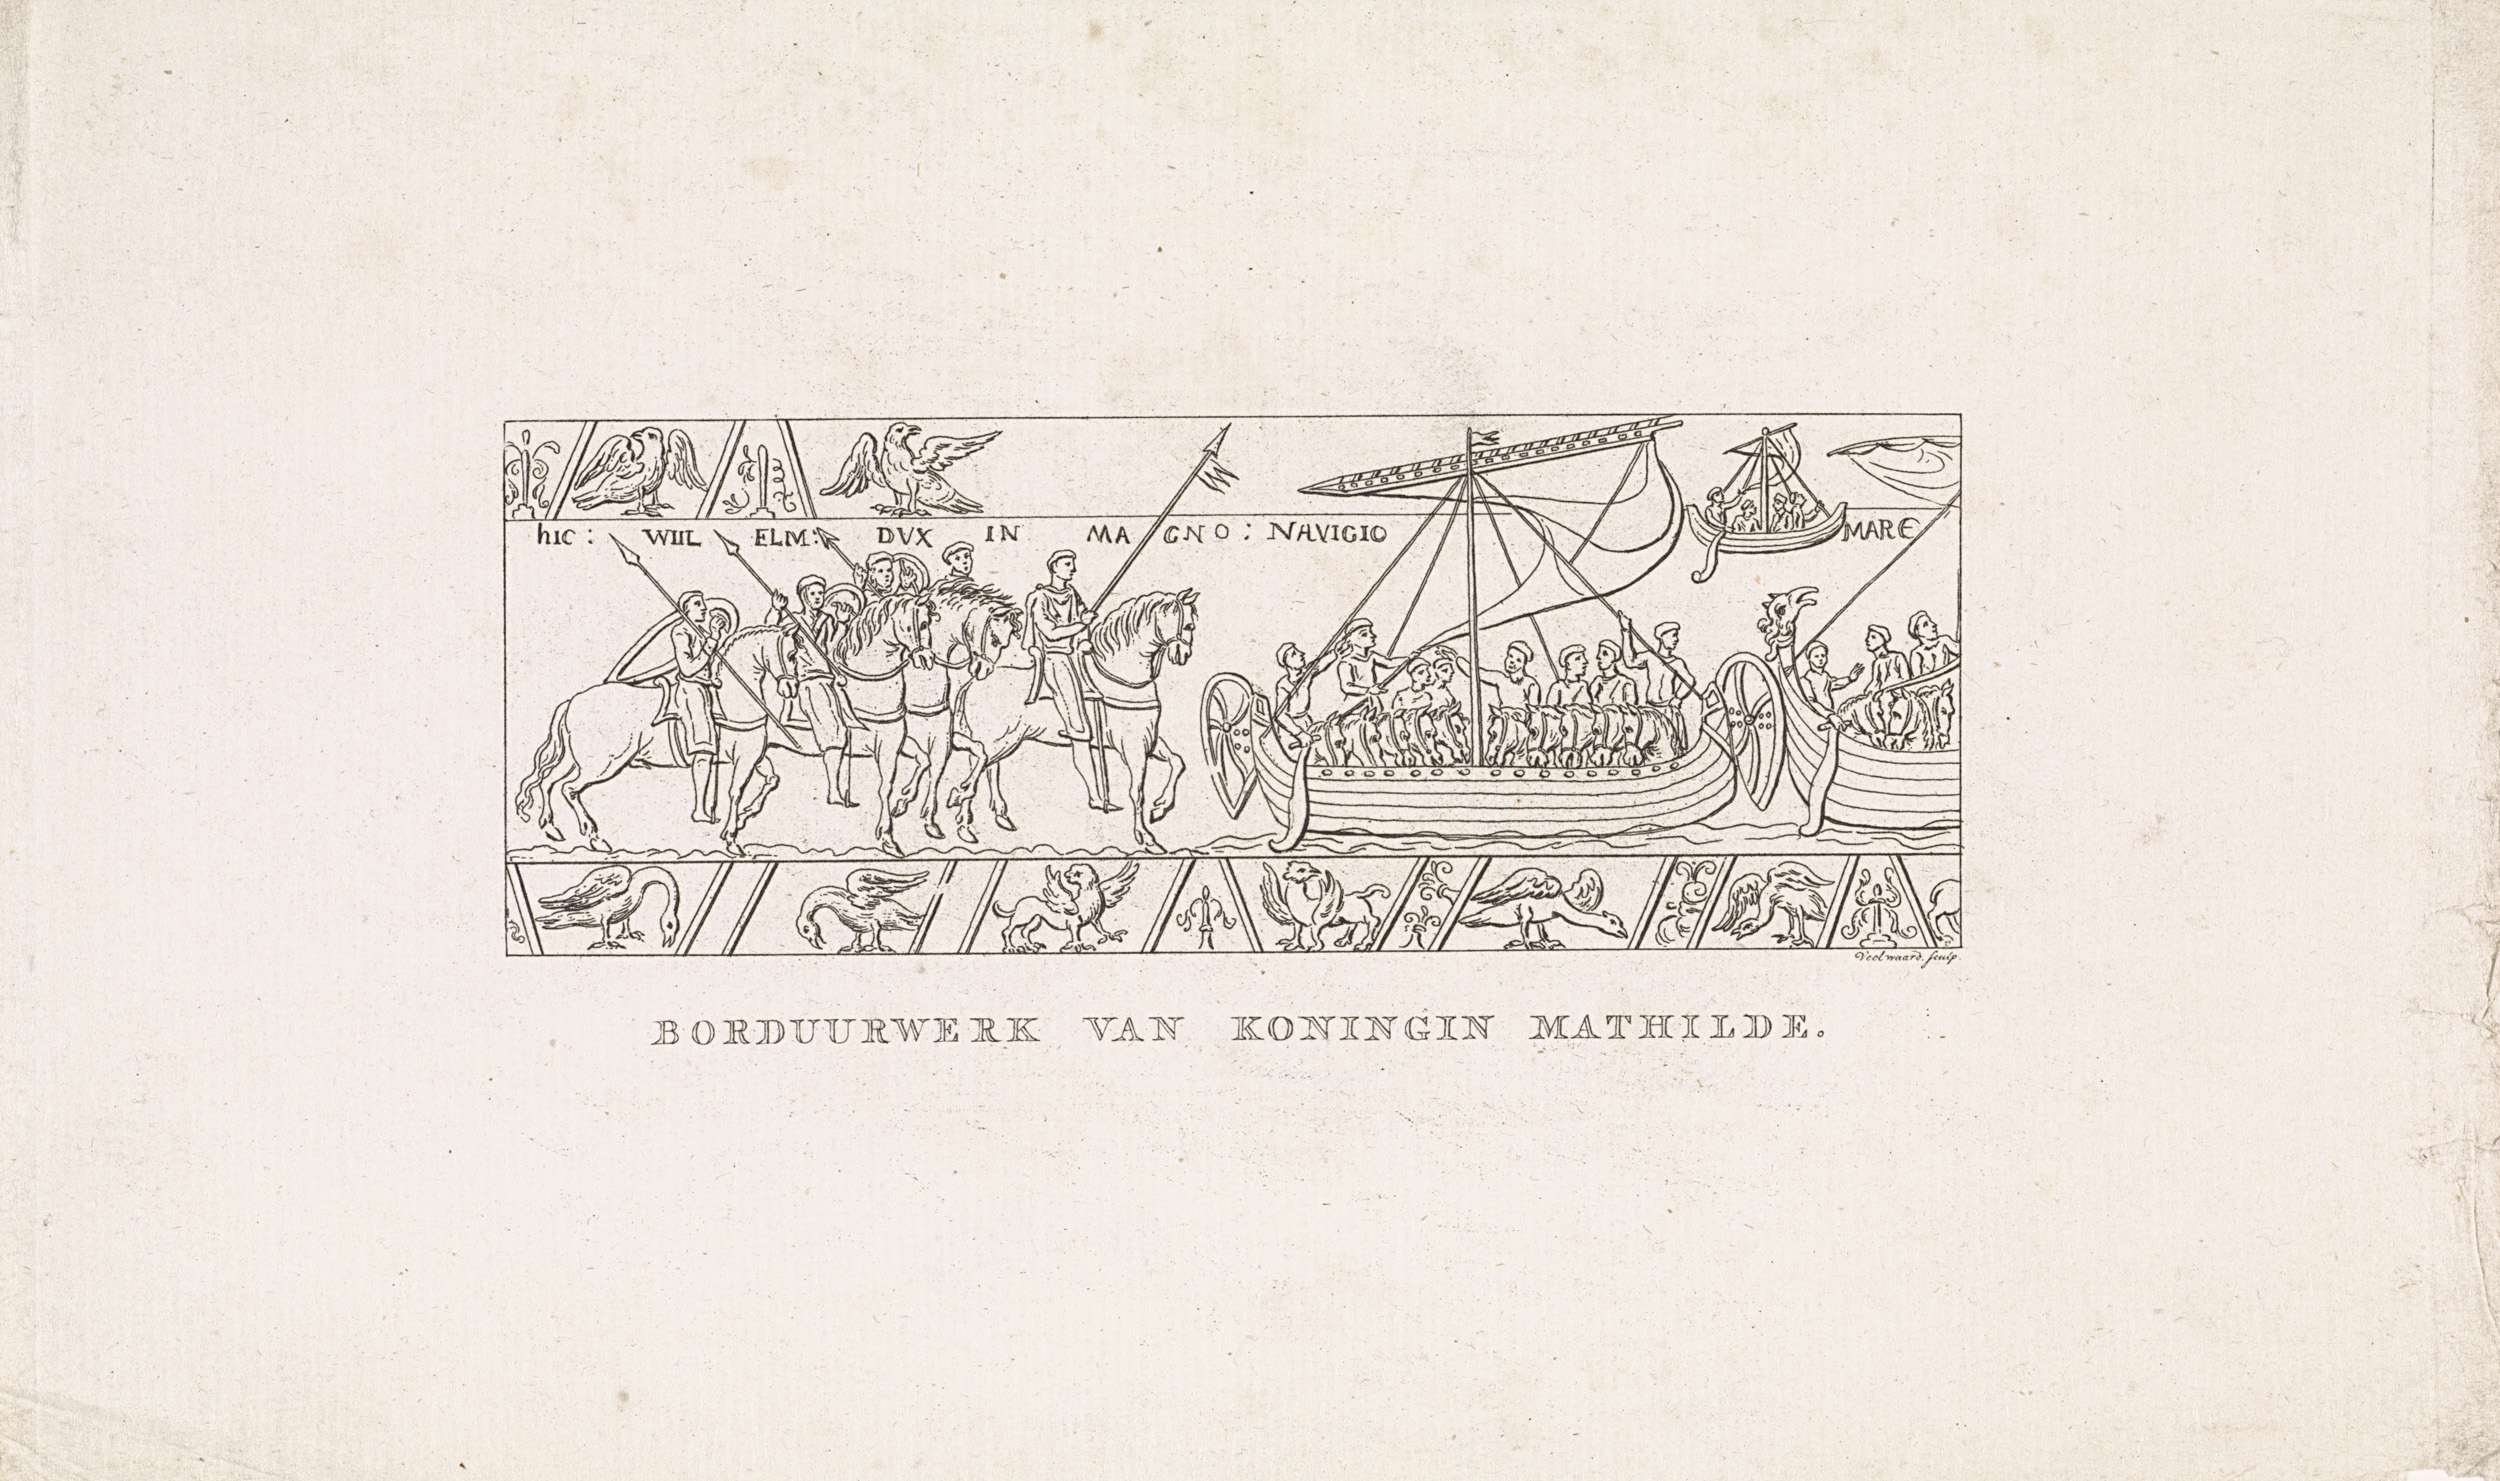 hIC : WIIL ELM: DVX IN MAGNO : NAVIGIO MARE
Veelwaard. sculp.
BORDUURWERK VAN KONINGIN MATHILDE.